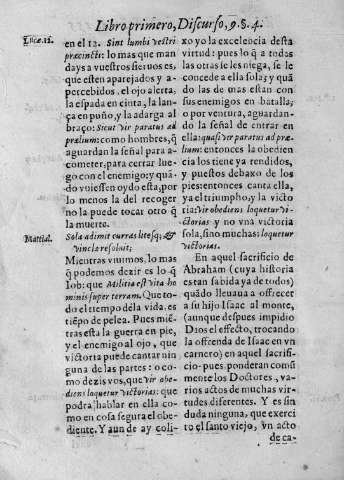 Libro primero, Discurso, 9. §. 4.
Lucæ. 12.
en el 12. Sint lumbi vestri
præcincti: lo mas que man
days a vuestros sieruos es,
que esten aparejados y a-
percebidos. el ojo alerta,
la espada en cinta, la lan-
ça en puño, y la adarga al
braço: Sicut vir paratus ad
prælium: como hombres, q̃
aguardan la señal para a-
cometer, para cerrar lue-
go con el enemigo: y quã-
do vuiessen oydo esta, por
lo menos la del recoger
no la puede tocar otro q̃
la muerte.
Martial.
Sola adimit curras litesq; &
vincla resoluit;
Mientras viuimos, lo mas
q̃ podemos dezir es lo q̃
Iob: que Militia est vita ho
minis super terram. Que to-
do el tiempo dela vida, es
tiẽpo de pelea. Pues miẽ-
tras esta la guerra en pie,
y el enemigo al ojo, que
victoria puede cantar nin
guna de las partes: o co-
mo dezis vos, que vir obe-
diens loquetur victorias: que
podra hablar en ella co-
mo en cosa segura el obe-
diente. Y aun de ay coli-
xo yo la excelencia desta
virtud: pues lo q̃ a todas
las otras se les niega, se le
concede a ella sola; y quã
do las de mas estan con
sus enemigos en batalla,
o por ventura, aguardan-
do la señal de entrar en
ella: quasi vir paratus ad præ-
lium: entonces la obedien
cia los tiene ya rendidos,
y puestos debaxo de los
pies: entonces canta ella,
ya el triumpho, y la victo
ria: vir obediens loquetur vi-
ctorias y no vna victoria
sola, sino muchas: loquetur
victorias.
En aquel sacrificio de
Abraham (cuya historia
estan sabida ya de todos)
quãdo lleuaua a offrecer
a su hijo Isaac al monte,
(aunque despues impidio
Dios el effecto, trocando
la offrenda de Isaac en vn
carnero) en aquel sacrifi-
cio pues ponderan consum
mente los Doctores, va-
rios actos de muchas vir-
tudes diferentes. Y es sin
duda ninguna, que exerci
to el santo viejo, vn acto
de ca-